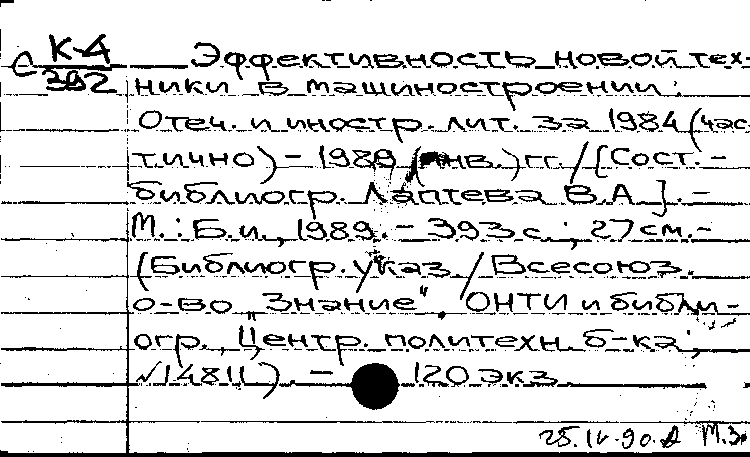 С К-4
392
Эффективность новой тех-
ники в машиностроении:
Отеч. и иностр. лит. за 1984 (час-
тично) – 1989 (янв.) гг. / [Сост. –
библиогр. Лаптева В.А.]. –
М.: Б.и., 1989. – 393 с.; 27 см. –
(Библиогр. указ. / Всесоюз.
о-во „Знание“. ОНТИ и библи-
огр., Центр. политехн. б-ка;
№14811). – 120 экз.
25.IV.90.